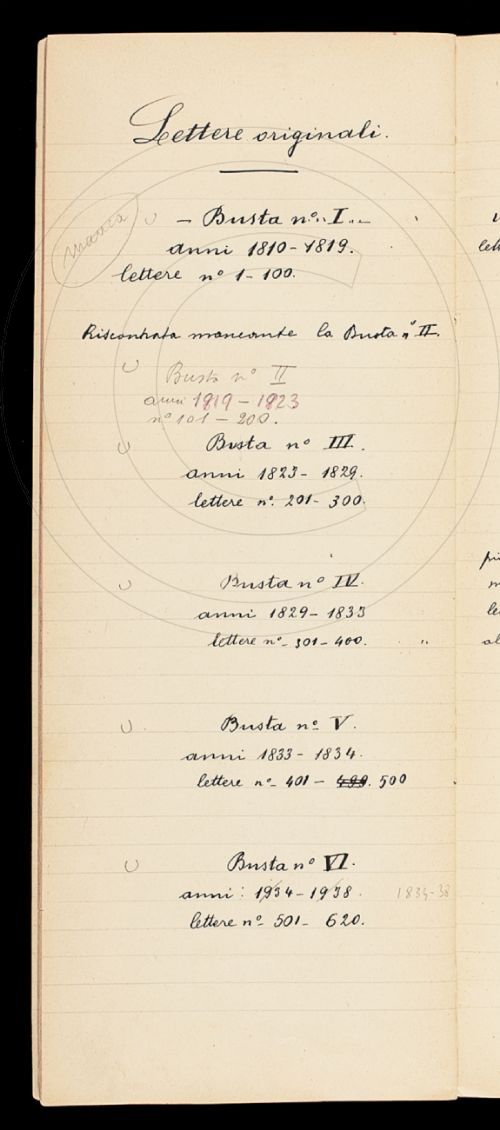 Lettere originali.
manca
- Busta nº. I.
anni 1810-1819.
lettere nº 1-100.
Riscontrata mancante la Busta nº II.
Busta nº II
anni 1819-1823
nº 101-200.
Busta nº III.
anni 1823-1829.
lettere nº. 201-300.
Busta nº IV.
anni 1829-1833
lettere nº- 301-400. "
Busta nº V.
anni 1833-1834.
lettere nº- 401- 499. 500
Busta nº VI.
anni: 1934-1938. 1834-38
lettere nº- 501- 620.